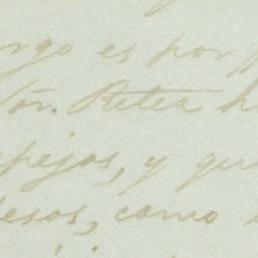 rgo es por p
tór. Retes h
pejos, y que
esos, como